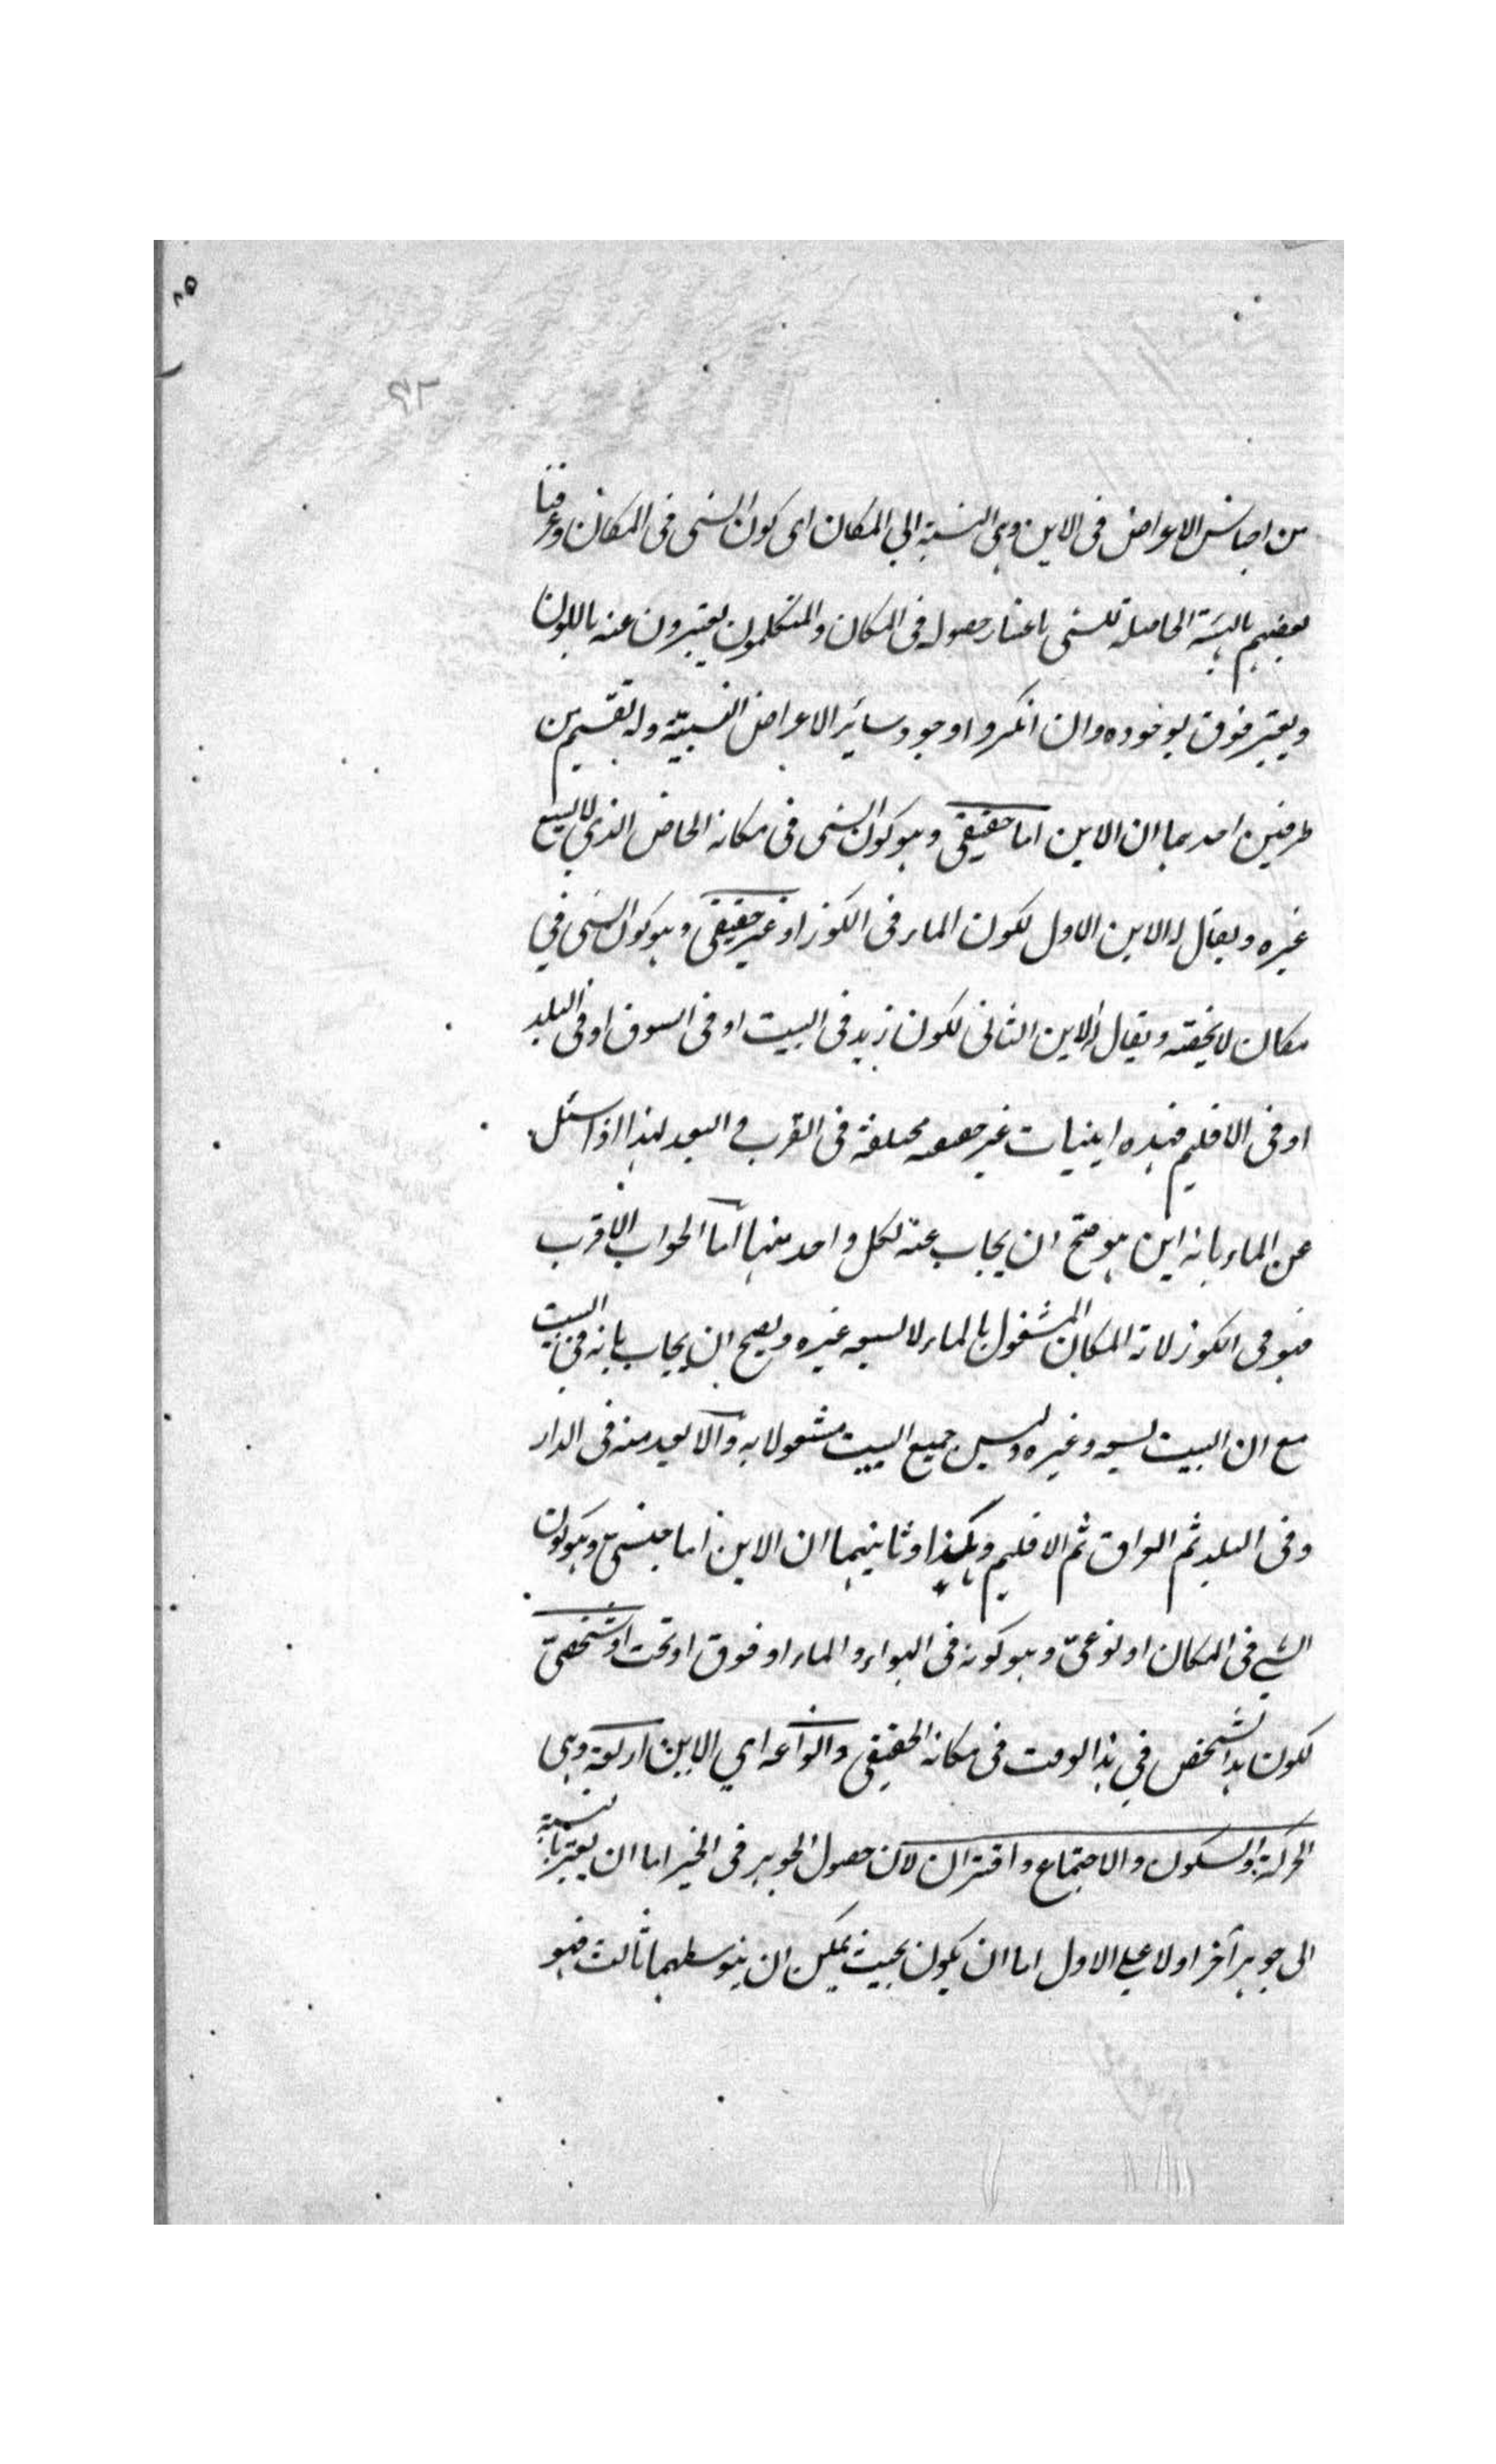 ٨٥
٩٢
من اجناس الاعراض فى الاين وهى النسبة الي المكان اى كون الشى فى المكان وعرفنا
بعضهم بالهيئة الحاصلة للشى باعتبار حصوله فى المكان والمتكلمون يعتبرون عنه باللون
ويعتبر فوق بوخوده وان انكروا وجود سائر الاعراض النسبيّة وله تقسيم من
طرفين احدهما ان الاين اما حقيقى وهو كون الشى فى مكانه الخاص الذي لا يسع
غيره ويقال له الاين الاول لكون الماء فى الكوز او غير حقيقى وهو كون الشى في
مكان لا يخصه ويقال له الاين الثانى لكون زيد فى البيت او فى السوق او فى البلد
او فى الاقليم فهذه اينيات غير حقيقيه مختلفة فى القرب و البعد لهذا اذا سئل
عن الماء بانه اين هو صح ان يجاب عنه لكل واحد منها اما الجواب الاقرب
فهو فى الكوز لانه المكان المشغول بالماء لا يسعه غيره ويصح ان يجاب بانه فى البيت
مع ان البيت يسعه وغيره وليس جميع البيت مشغولا به والابعد منه فى الدار
وفى البلد ثم العراق ثم الاقليم وهكذا وثانيهما ان الاين اما جنسى وهو كون
الشي فى المكان او نوعىّ وهو كونه فى الهواء والماء او فوق او تحت او شخصىّ
لكون هذا الشخص في هذا الوقت فى مكانه الحقيقى وانواعه اي الاين اربعة وهى
الحركة والسكون والاجتماع وافتراق لان حصول الجوهر فى الحيز اما ان يعتبر بالنسبة
الى جوهر آخر اولا على الاول اما ان يكون بحيث يمكن ان يتوسطهما ثالث فهو